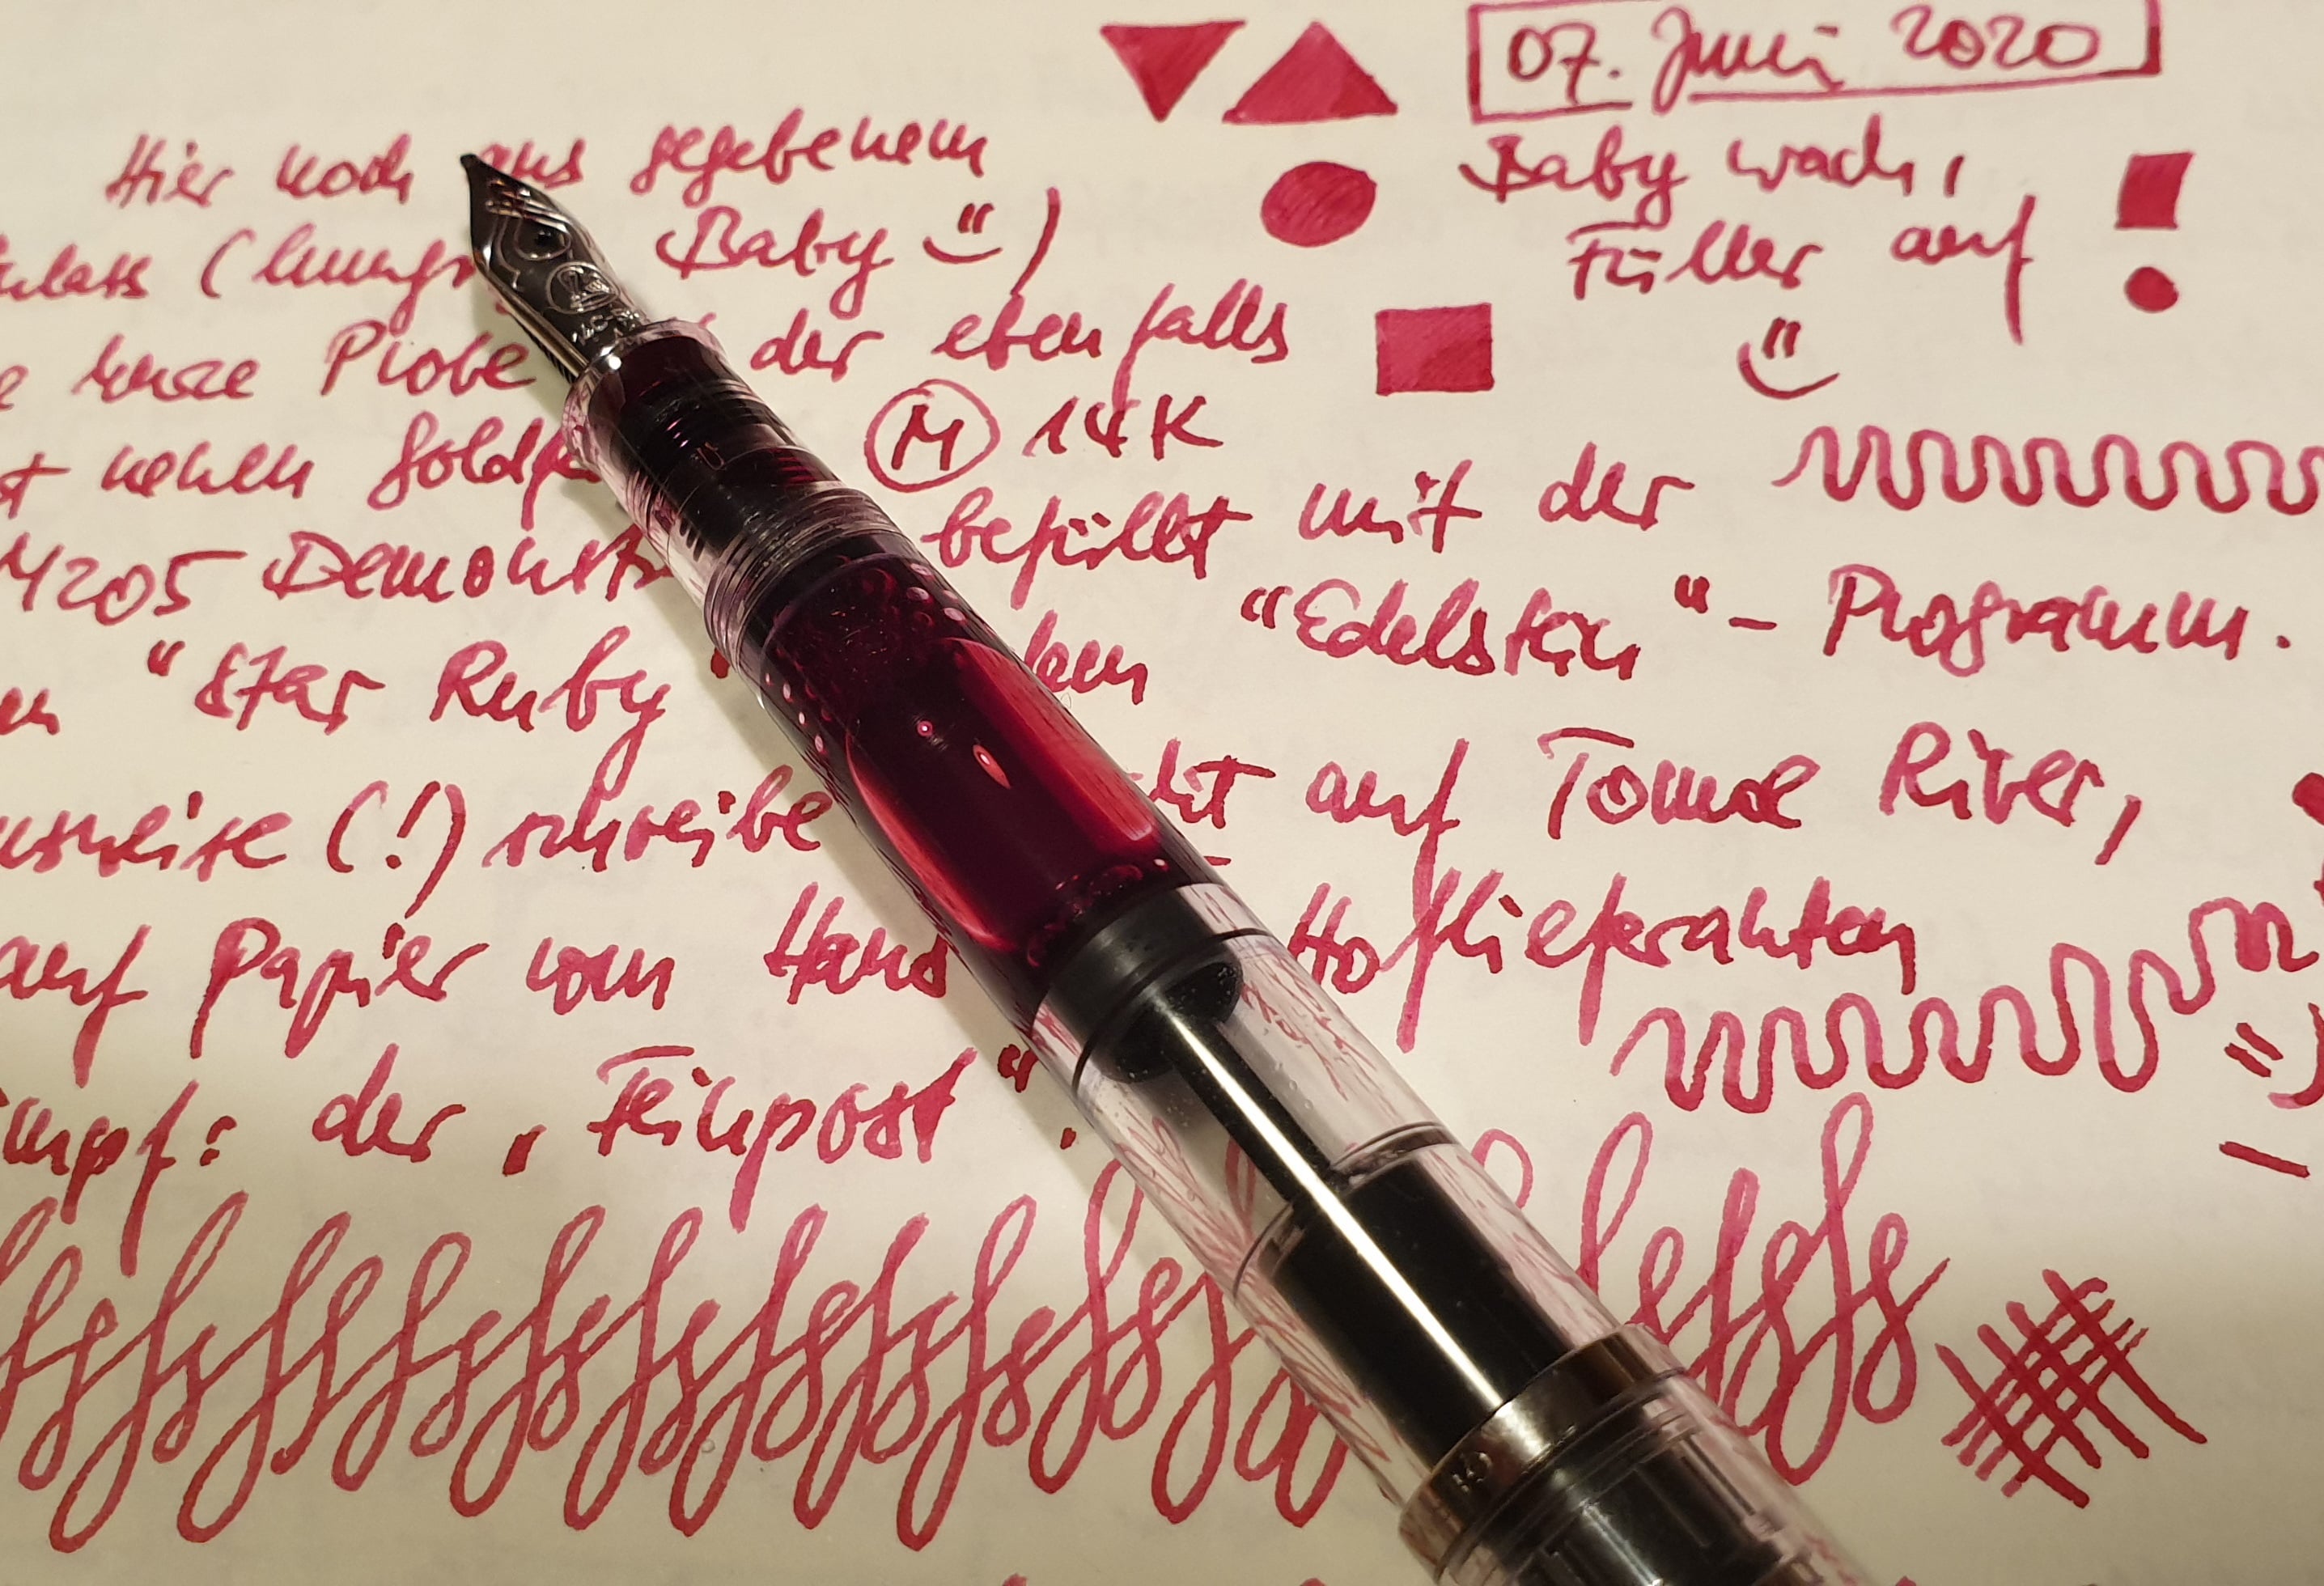 07. Juni 2020
Baby wach,
Füller auf
Hier noch aus gegebenem
Baby )
kurze Probe der ebenfalls
neuen M 14K
M205 befüllt mit der
"Star Ruby" "Edelstein"-Programm.
(!) schreibe auf Tomoe River,
auf Papier vom Haus Hoflieferanten
der „Feinpost“.